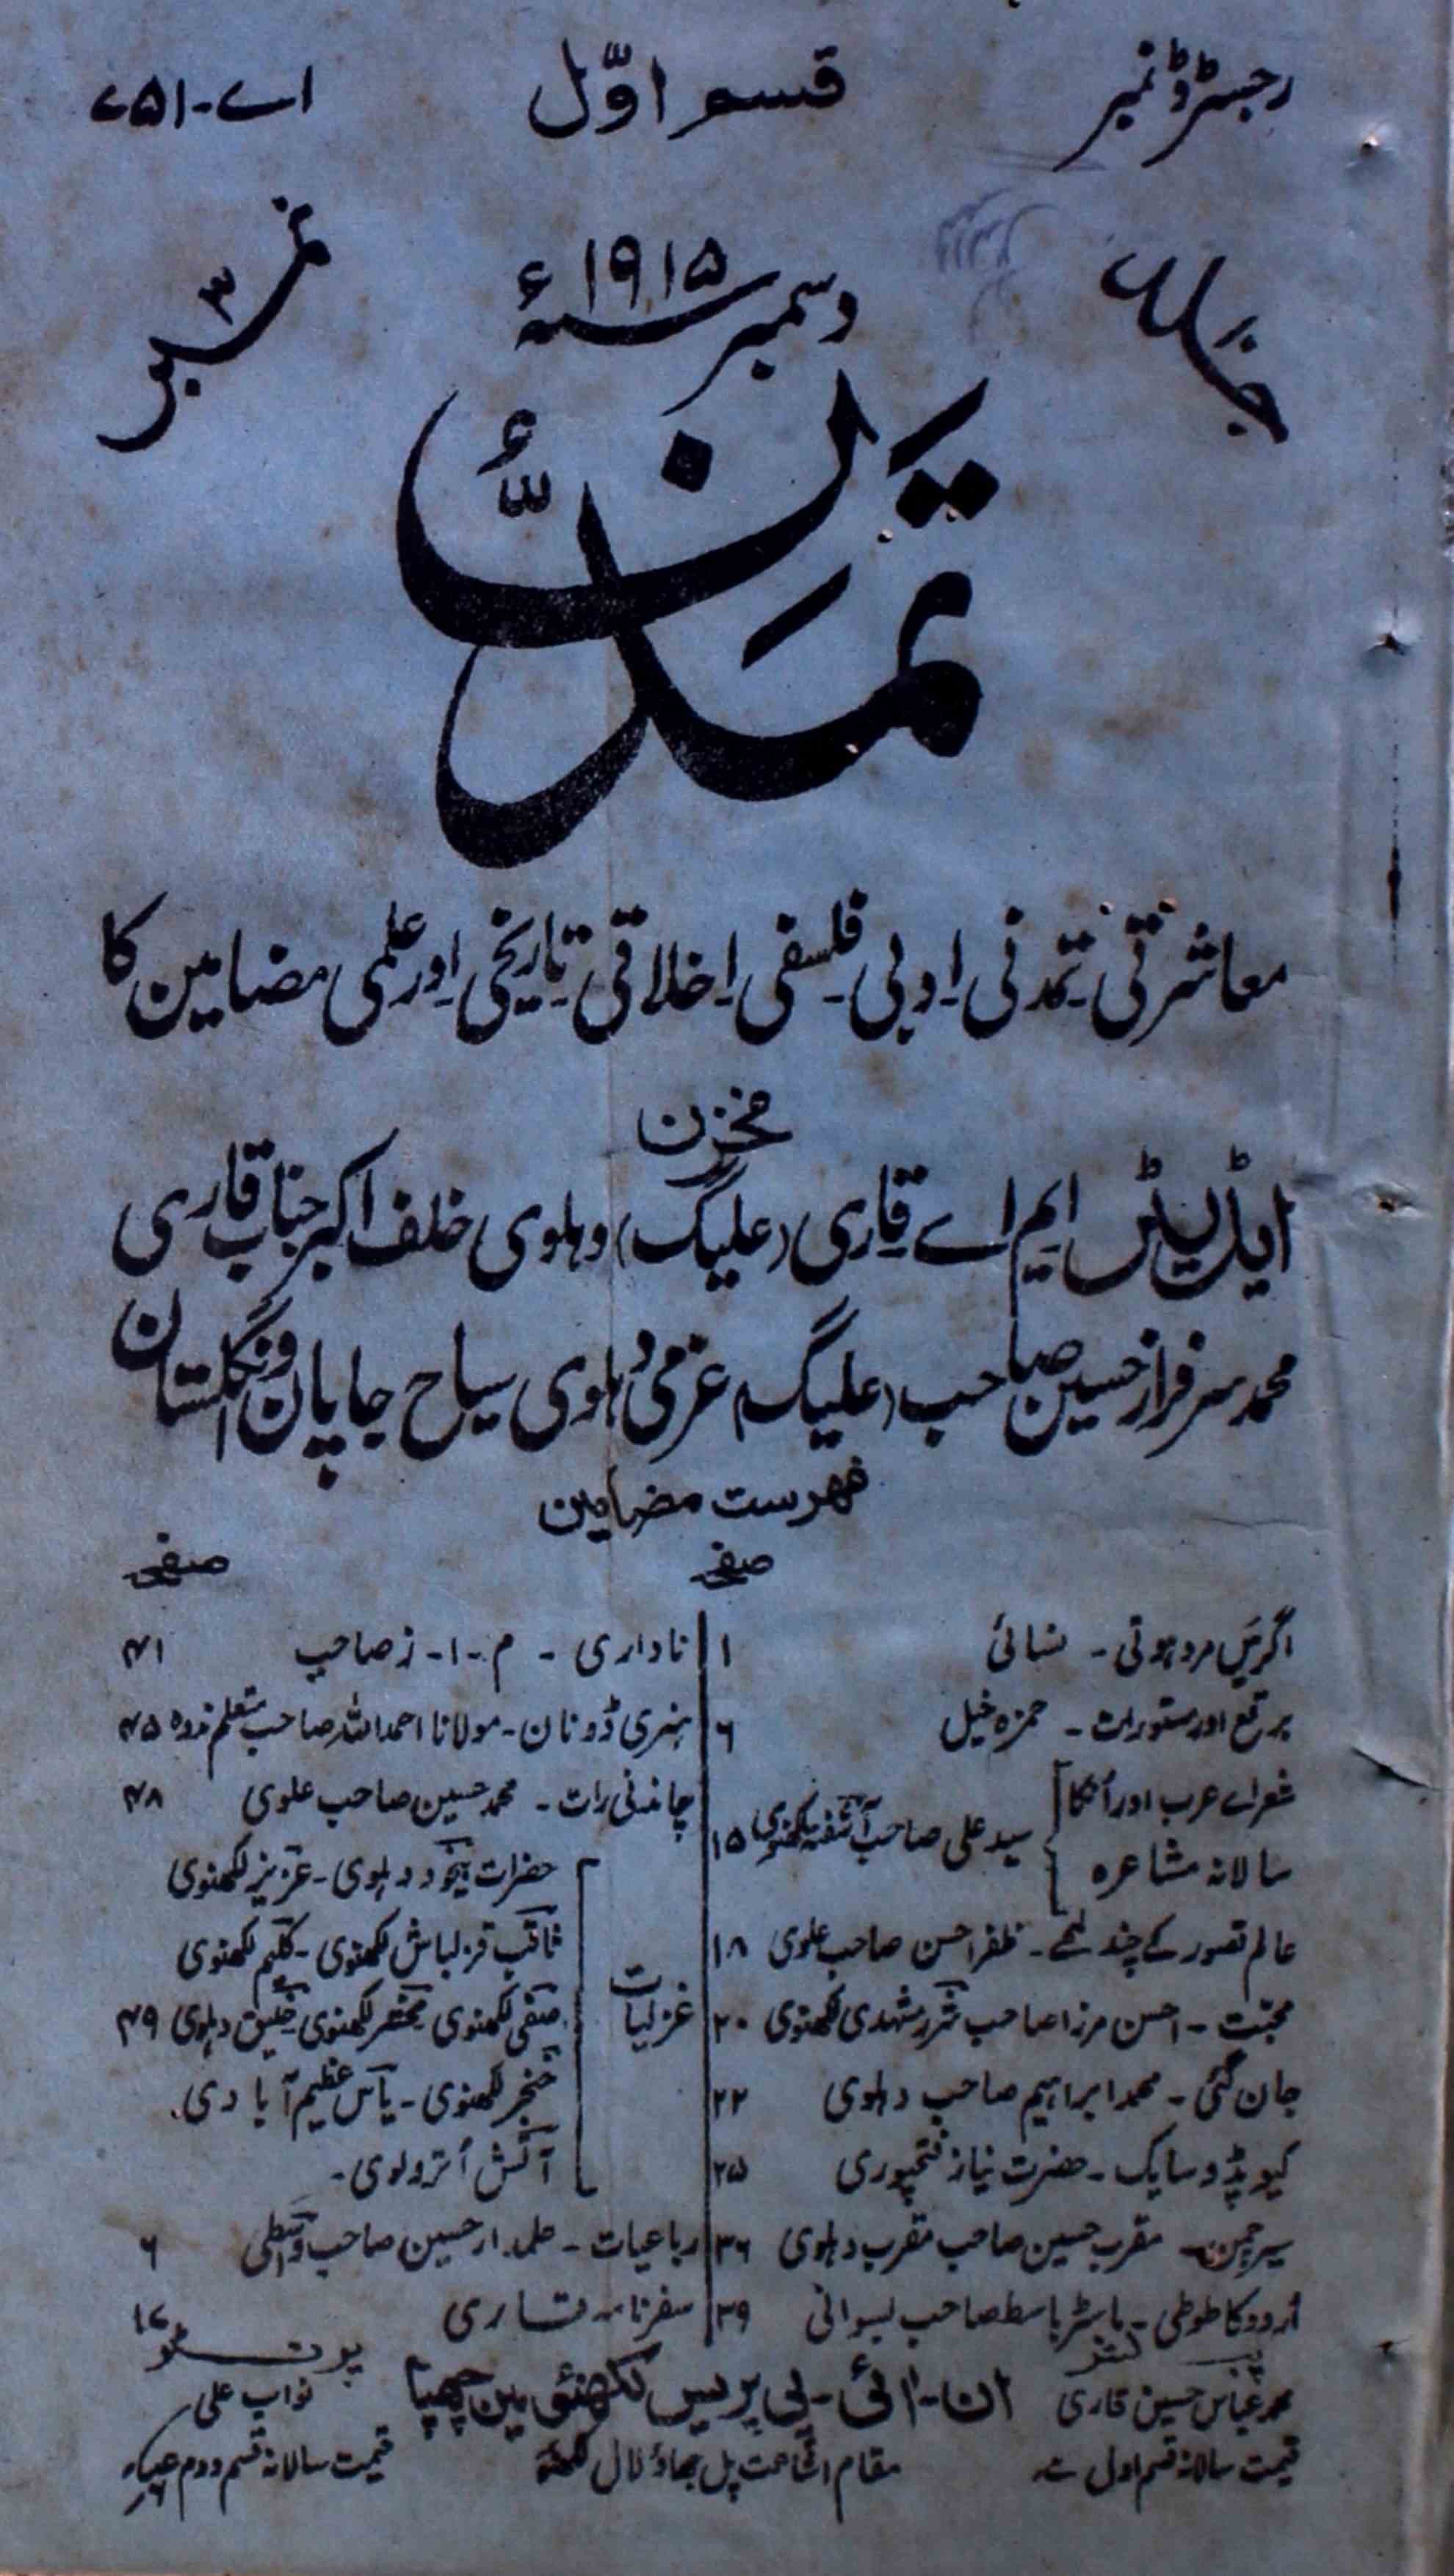 رجسٹرڈ نمبر
قسم اوّل
اے-۷۵۱
جلد
دسمبر سنہ ۱۹۱۵ء
نمبر ۳
تمدّن
معاشرتی۔تمدنی۔ادبی۔فلسفی۔اخلاقی۔تاریخی۔اور علمی مضامین کا
مخزن
ایڈیٹر ایم اے قاری (علیگ) دہلوی خلف اکبر جناب قاری
محمد سرفراز حسین صاحب (علیگ) عزمی دہلوی سیاح جاپان و انگلستان
فہرست مضامین
صفحہ
اگر میں مرد ہوتی۔ نسائی ۱
برقع اور مستورات۔ حمزہ خیل ۶
شعراے عرب اور اُنکا
سالانہ مشاعرہ
سید علی صاحب آشفتہ لکھنوی ۱۵
عالم تصور کے چند لمحے۔ ظفر احسن صاحب علوی ۱۸
محبّت۔ احسن مرزا صاحب شرر مشہدی لکھنوی ۲۰
جان گئی۔ محمد ابراہیم صاحب دہلوی ۲۲
کیوپڈ و سایک۔ حضرت نیاز فتحپوری ۲۵
سیر چمن۔ مقرب حسین صاحب مقرب دہلوی ۳۶
اُردو کا طوطی۔ ماسٹر باسط صاحب بسوانی ۳۹
صفحہ
ناداری۔ م۔ا۔ز صاحب ۴۱
ہنری ڈونان۔ مولانا احمد اللہ صاحب متعلم ندوہ ۴۵
چاندنی رات۔ محمد حسین صاحب علوی ۴۸
غزلیات
حضرات بیخود دہلوی۔ عزیز لکھنوی
ثاقب قزلباش لکھنوی۔ کلیم لکھنوی
صفی لکھنوی محشر لکھنوی خلیق دہلوی ۴۹
خنجر لکھنوی۔ یاس عظیم آبادی۔
آتش اُترولوی۔
رباعیات۔ علمدار حسین صاحب واسطی ۶
سفرنامہ قاری ۱۷
پبلشر
محمد عباس حسین قاری
ان۔ائی۔پی پریس لکھنؤ مین چھپا
پرنٹر
نواب علی
قیمت سالانہ قسم اول
مقام اشاعت پل بھاؤ لال لکھنؤ
قیمت سالانہ قسم دوم